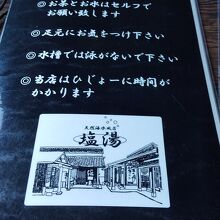 ◎お茶とお水はセルフで
お願い致します
◎足元にお気をつけ下さい
◎水槽では泳がないで下さい
◎当店はひじょーに時間が
かかります
天然海水風呂
塩湯